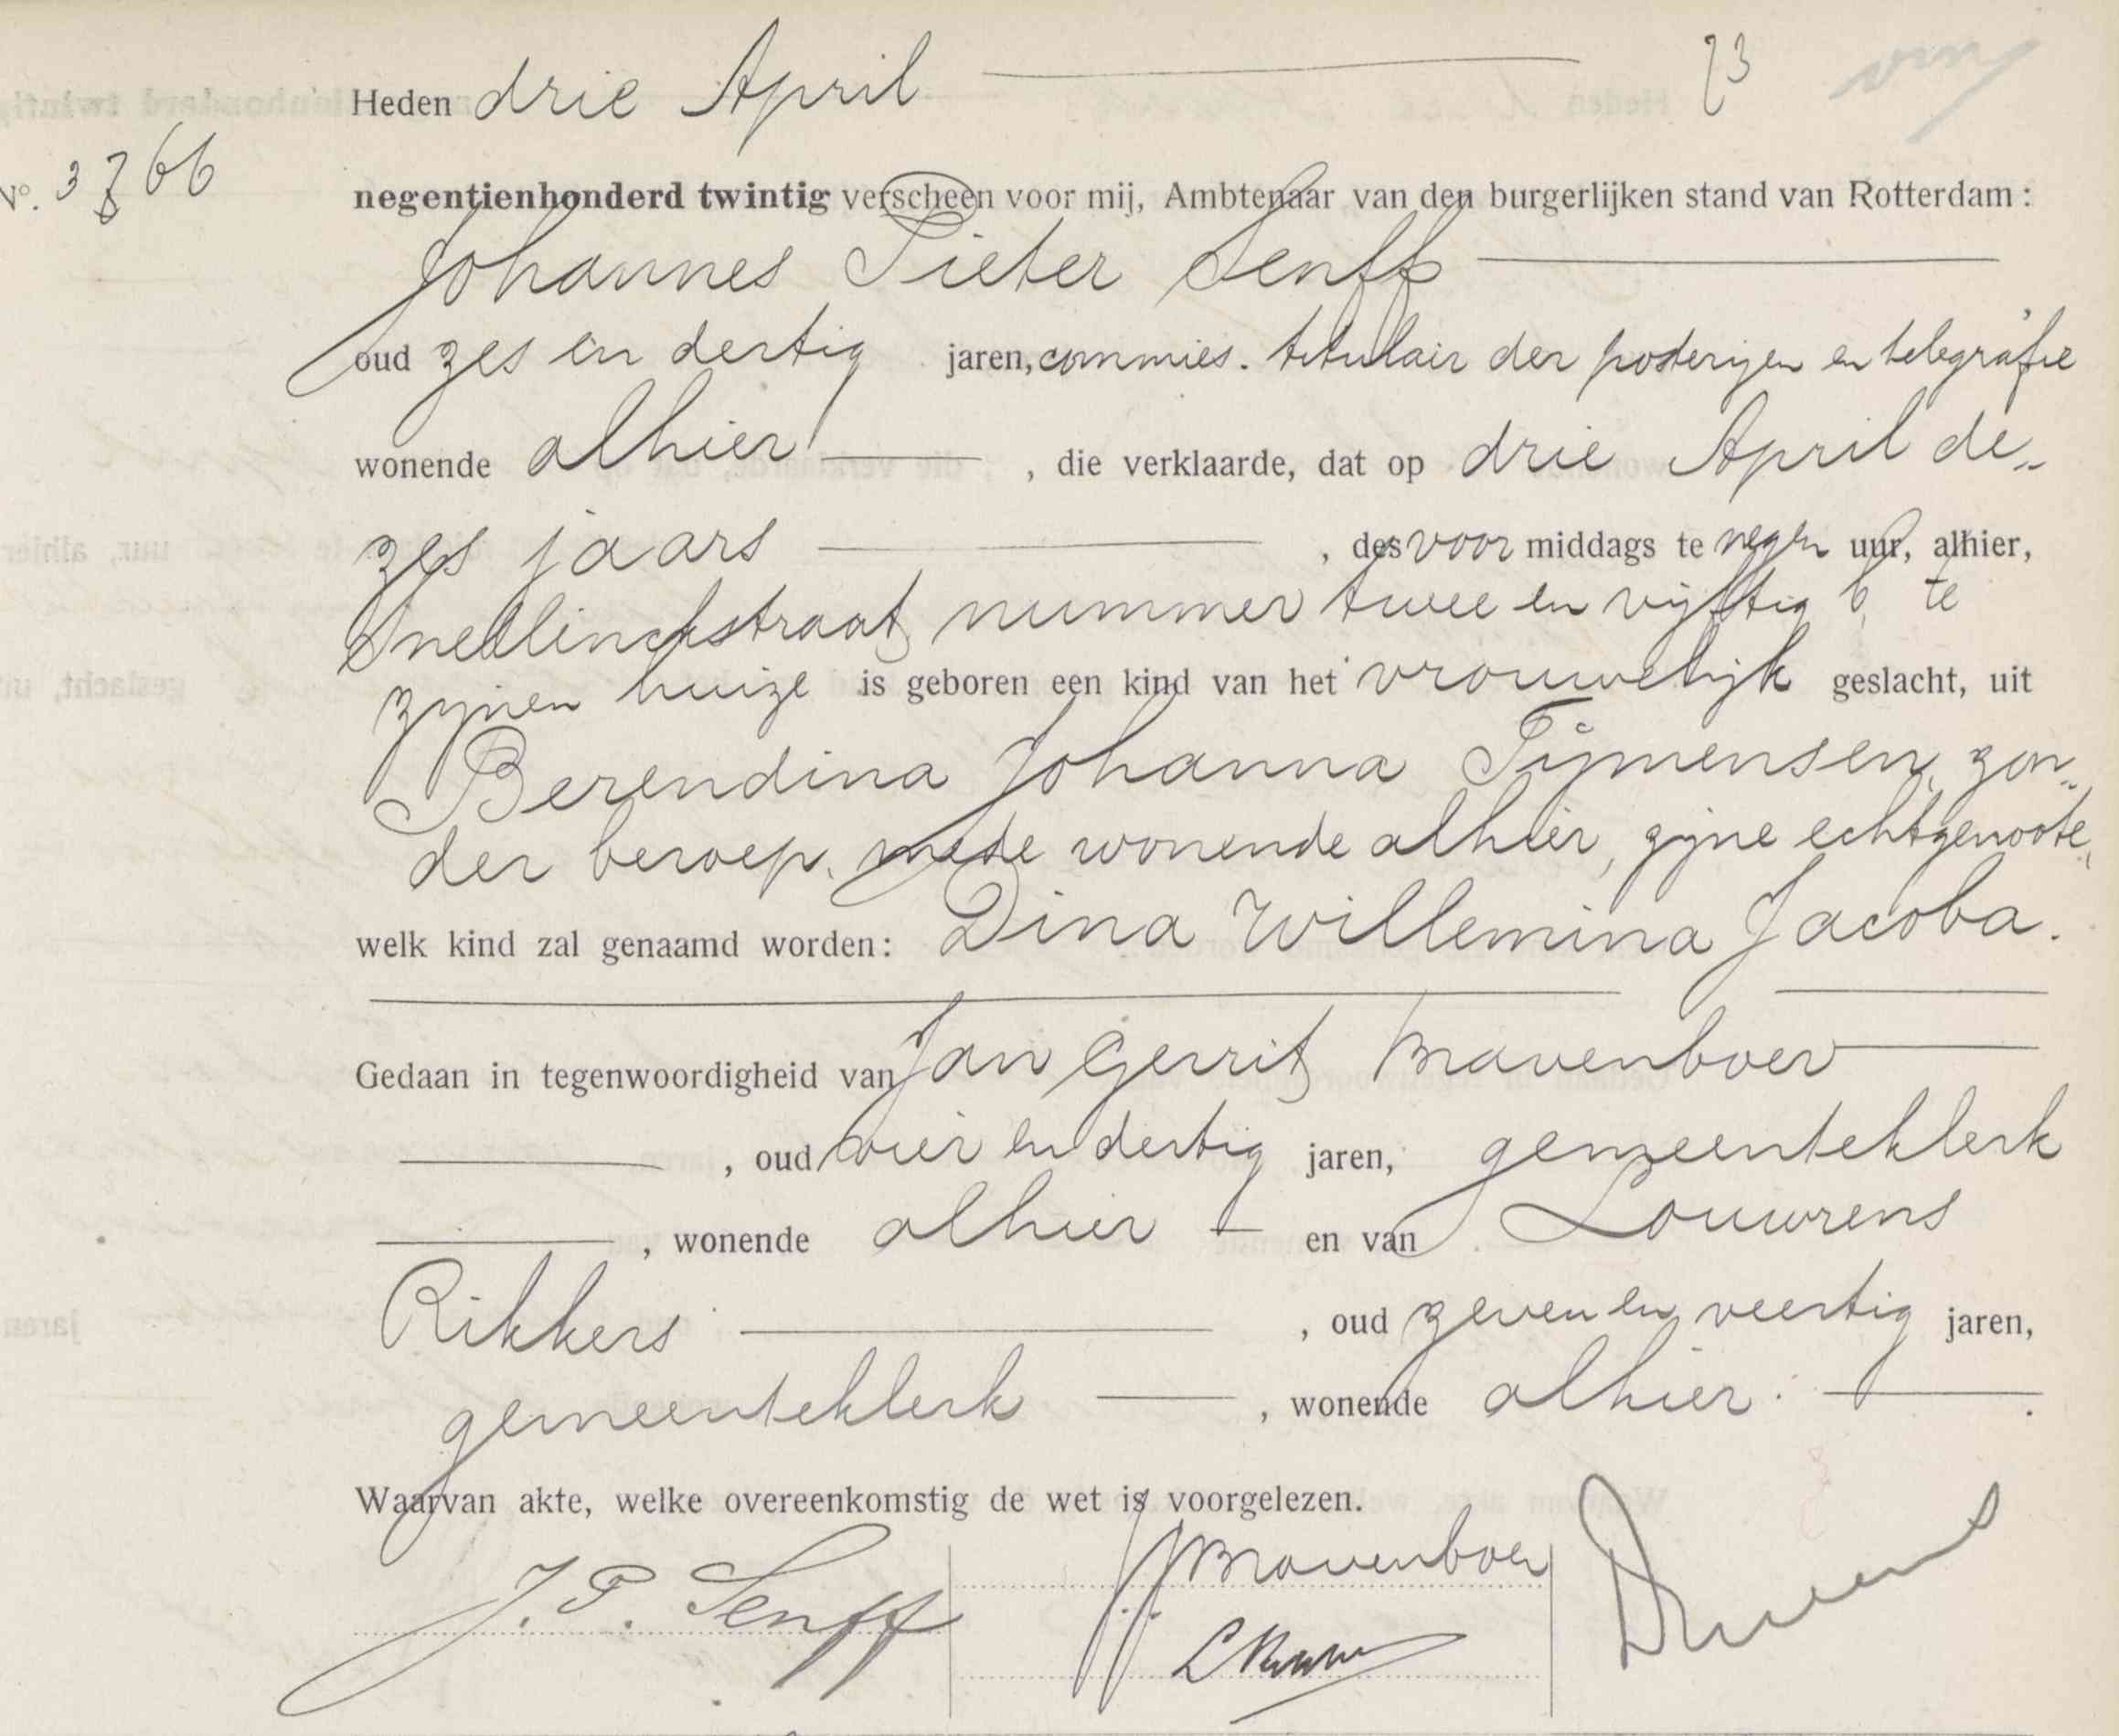 Heden drie April 73
No. 3766
negentienhonderd twintig verscheen voor mij, Ambtenaar van den burgerlijken stand van Rotterdam:
Johannes Pieter Senff
oud zes en dertig jaren, commies-titulair der posterijen en telegrafie
wonende alhier, die verklaarde, dat op drie April de„
zes jaars, des voor middags te negen uur, alhier,
Snellinckstraat nummer twee en vijftig b, te
zijnen huize is geboren een kind van het vrouwelijk geslacht, uit
Berendina Johanna Tijmensen, zon„
der beroep, mede wonende alhier, zijne echtgenoote,
welk kind zal genaamd worden: Dina Willemina Jacoba.
Gedaan in tegenwoordigheid van Jan Gerrit Mavenboer
, oud vier en dertig jaren, gemeenteklerk
, wonende alhier en van Louwrens
Rikkers, oud zeven en veertig jaren,
gemeenteklerk, wonende alhier.
Waarvan akte, welke overeenkomstig de wet is voorgelezen.
J. P. Senff J. G. Mavenboer